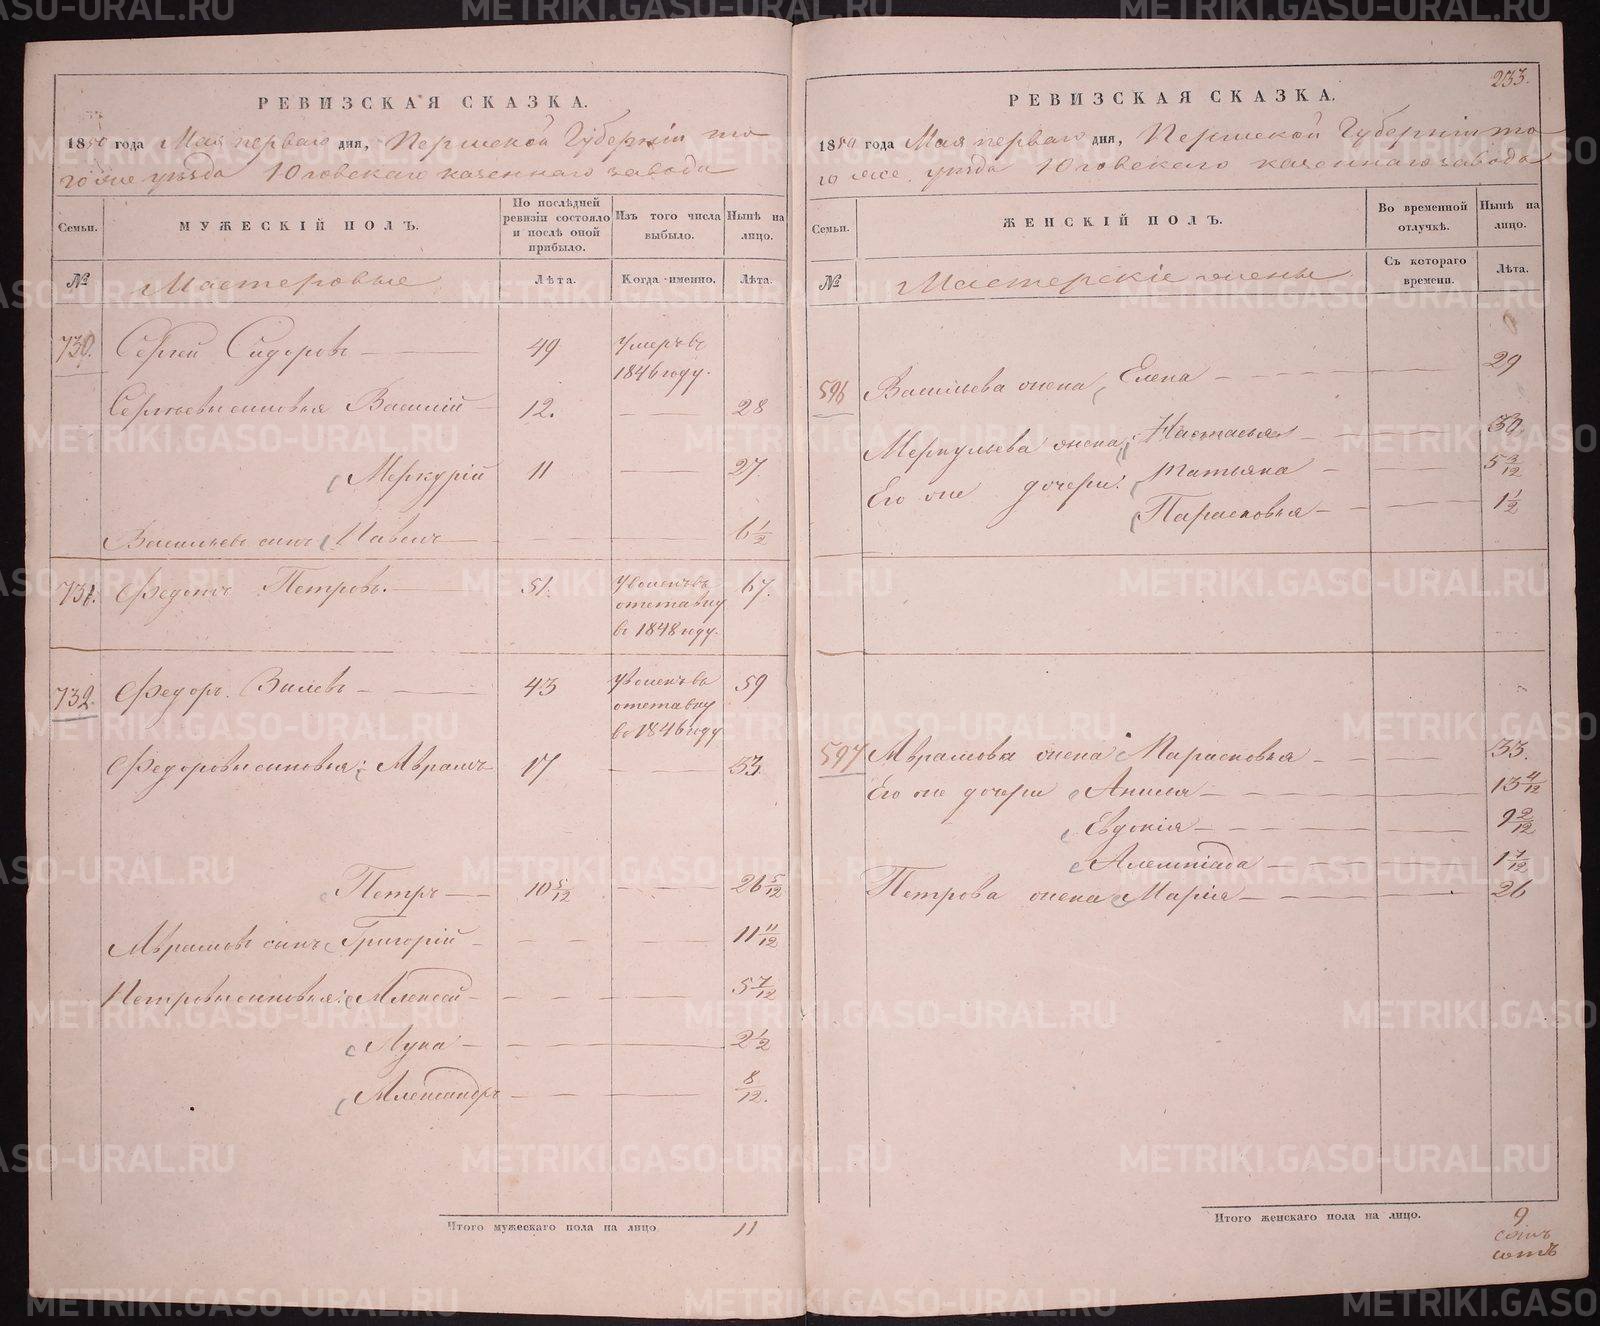 РЕВИЗСКАЯ СКАЗКА.
1850 года Мая перваго дня, Пермской Губерніи то
гоже уѣзда Юговскаго казеннаго завода
Семьи.
МУЖЕСКІЙ ПОЛЪ.
По послѣдней ревизіи состояло и послѣ оной прибыло.
Изъ того числа выбыло.
Нынѣ на лицо.
№
Мастеровые
Лѣта.
Когда именно.
Лѣта.
730. Сергей Сидоровъ — 49 умеръ въ
1846 году.
Сергѣевы сыновья Василій — 12. — 28
Меркурій 11 — 27.
Васильевъ сынъ Павелъ — 6 1/2
731. Федотъ Петровъ. — 51. Уволенъ въ 67.
отставку
въ 1848 году.
732. Федоръ — 43 Уволенъ въ 59
отставку
въ 1846 году
Федоровы сыновья: Аврамъ 17 — 33.
Петръ — 10 5/12 — 26 5/12
Аврамовъ сынъ Григорій — 11 11/12
Петровы сыновья: Алексей — 5 7/12
Лука — 2 1/2
Александръ — 8/12.
Итого мужескаго пола на лицо 11
233.
РЕВИЗСКАЯ СКАЗКА.
1850 года Мая перваго дня, Пермской Губерніи то
го же уѣзда Юговскаго казеннаго завода
Семьи.
ЖЕНСКІЙ ПОЛЪ.
Во временной отлучкѣ.
Нынѣ на лицо.
№
Мастерскіе жены
Съ котораго времени.
Лѣта.
596 Васильева жена, Елена — 29
Меркульева жена, Настасья — 30.
Его же дочери: Татьяна — 5 3/12
Парасковья — 1 1/2
597 Аврамова жена Парасковья — 33.
Его же дочери Анисия — 13 4/12
Евдокія — 9 2/12
— 1 7/12
Петрова жена Марія — 26
Итого женскаго пола на лицо. 9
METRIKI.GASO-URAL.RU